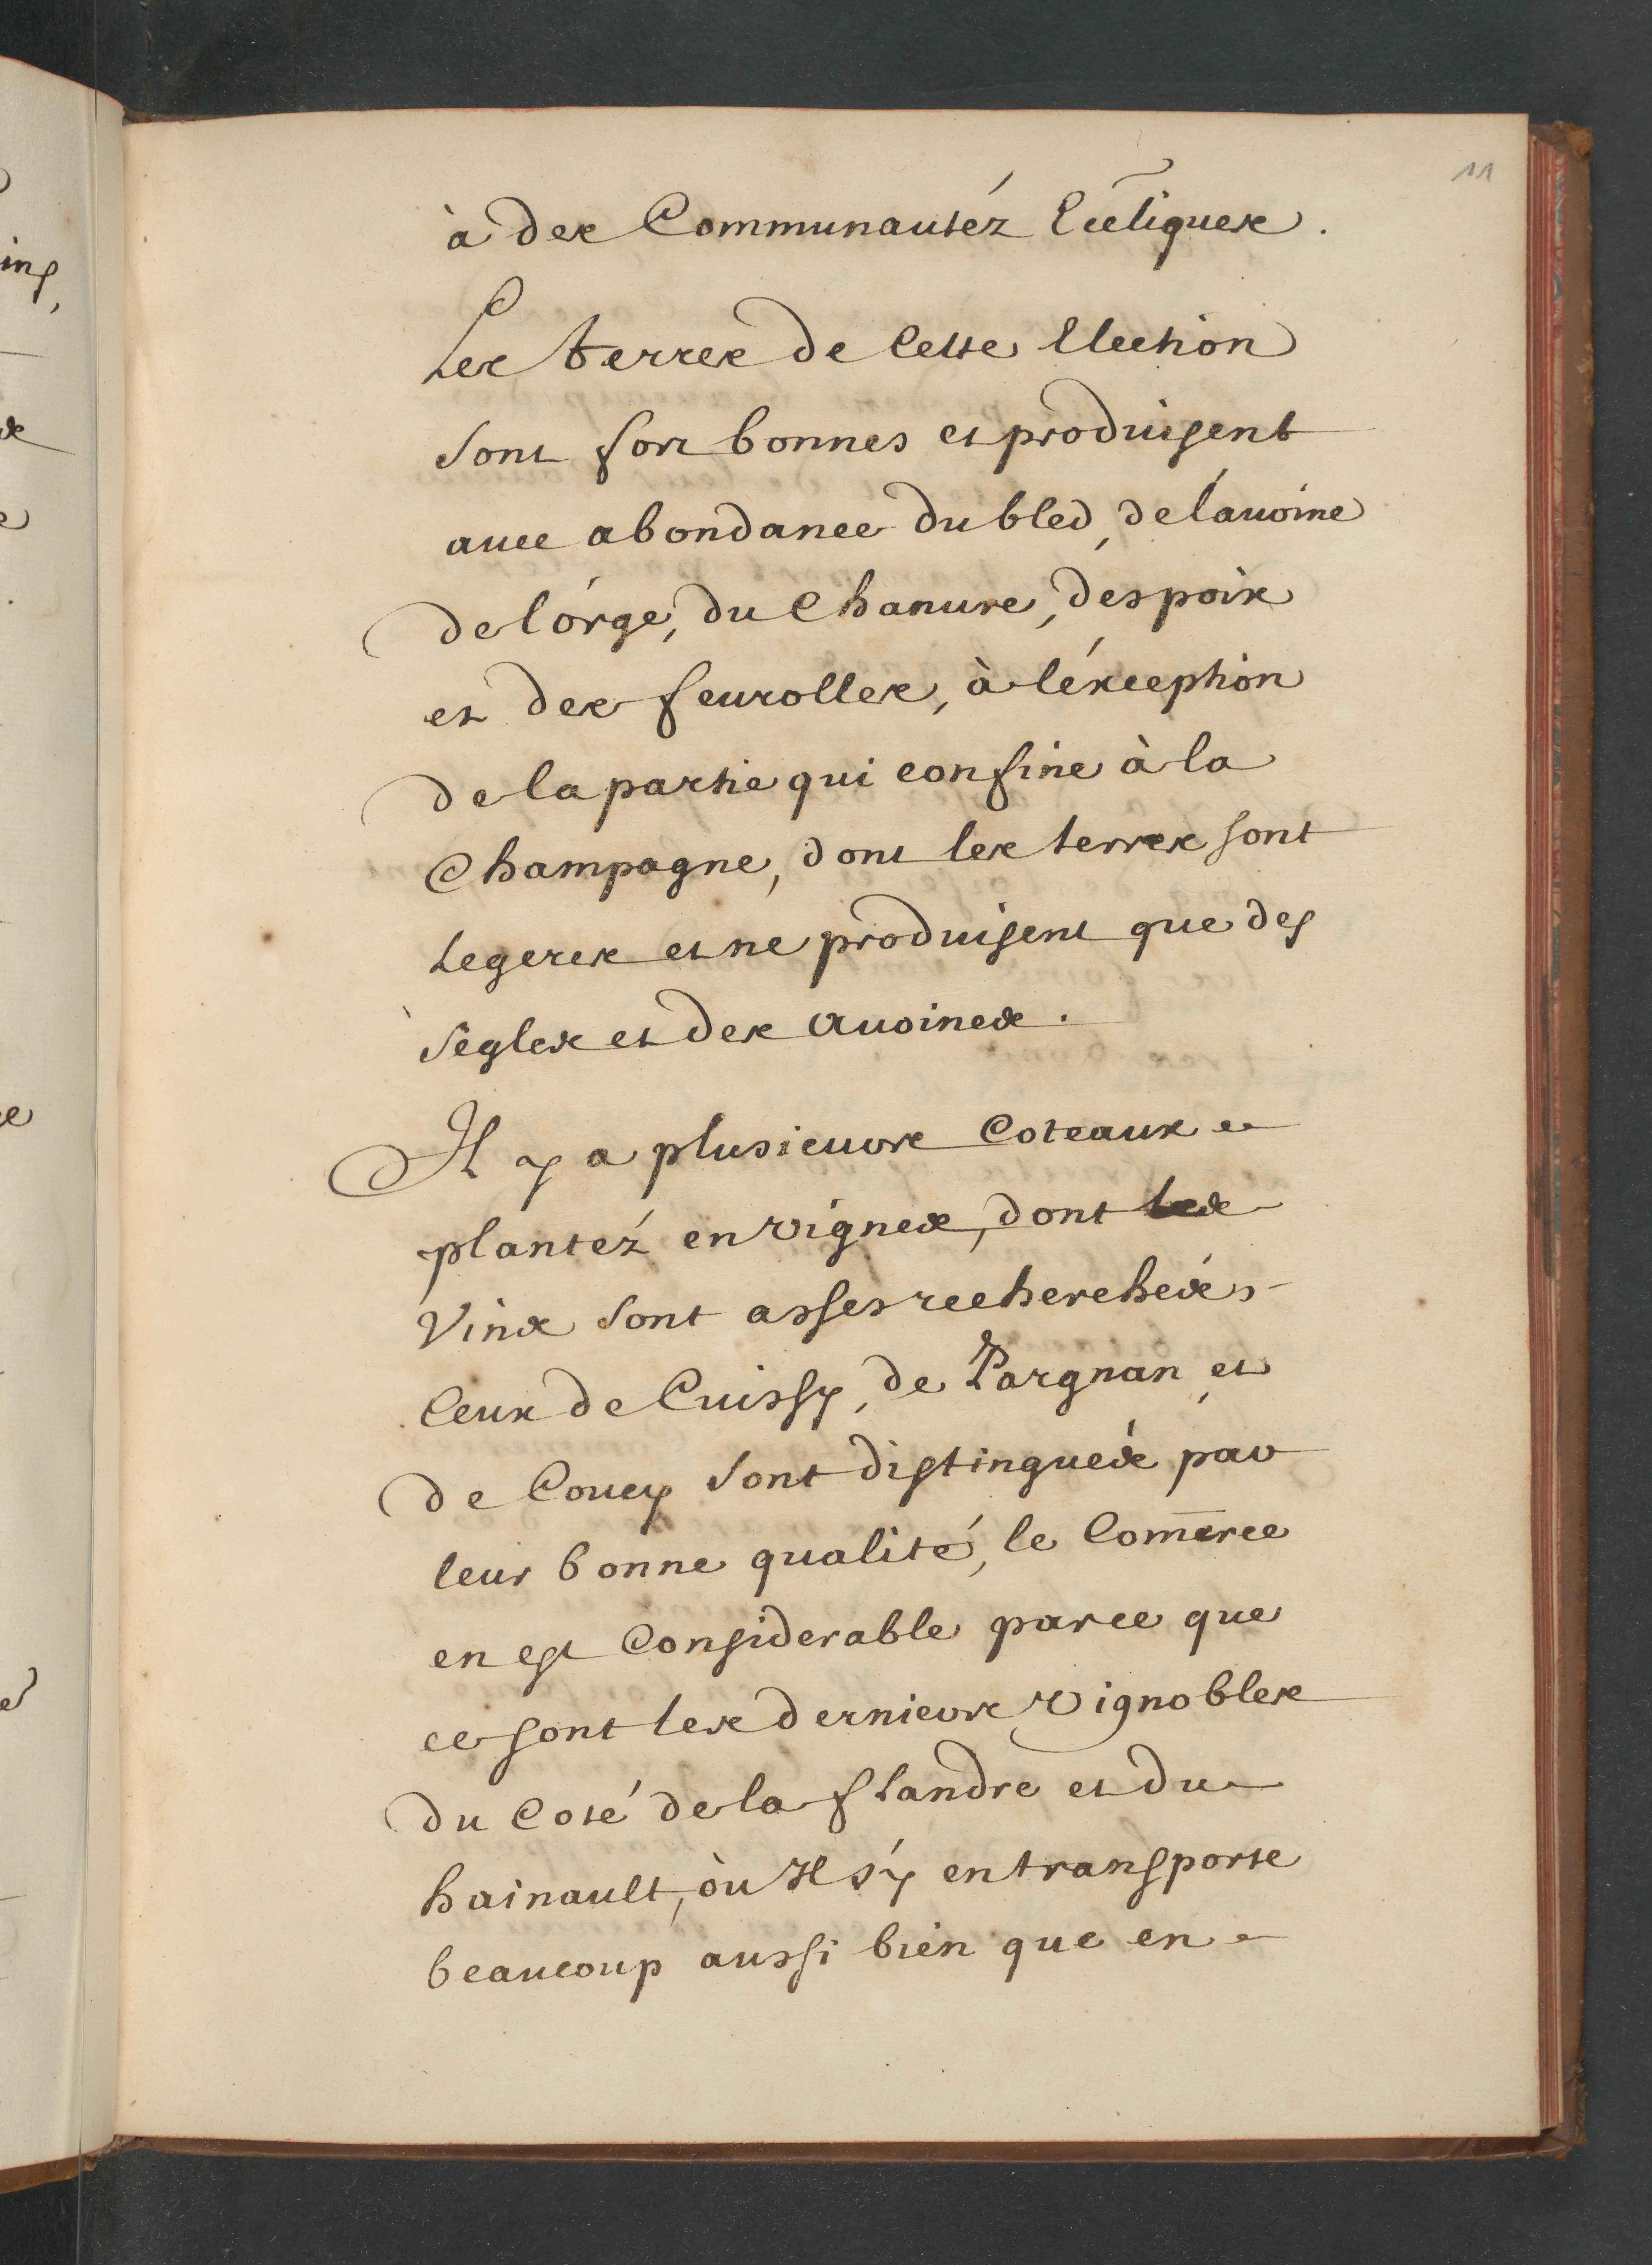 11
à des Communautéz Eccliques.
Les terres de Cette Election
sont fort bonnes et produisent
auec abondance du bled, de l'auoine
de l'orge, du Chanure, des pois
et des feurolles, à l'éxception
de la partie qui confine à la
Champagne, dont les terres sont
Legeres et ne produisent que des
segles et des auoines.
Il y a plusieurs Coteaux
plantéz en vignes, dont les
Vins sont asses recherchés
Ceux de Cuissy, de Pargnan et
de Coucy sont distingués par
leur bonne qualité, le Comerce
en est Considerable parce que
ce sont les derniers vignobles
du Coté de la flandre et du
hainault, où Il s'y en transporte
beaucoup aussi bien que en